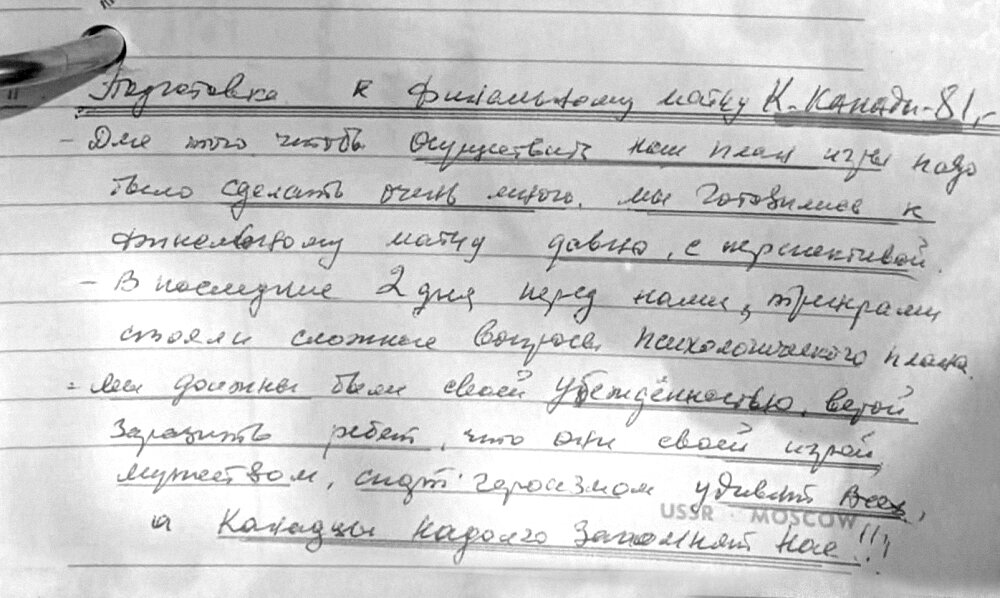 Подготовка к финальному матчу К. Канады-81,
- Для того чтобы осуществить наш план игры надо
было сделать очень много, мы готовились к
финальному матчу давно, с перспективой.
- В последние 2 дня перед нами, тренерами,
стояли сложные вопросы психологического плана.
- Мы должны были своей убеждённостью, верой
заразить ребят, что они своей игрой,
мужеством, героизмом удивят всех,
а Канадцы надолго запомнят нас!!!
USSR MOSCOW